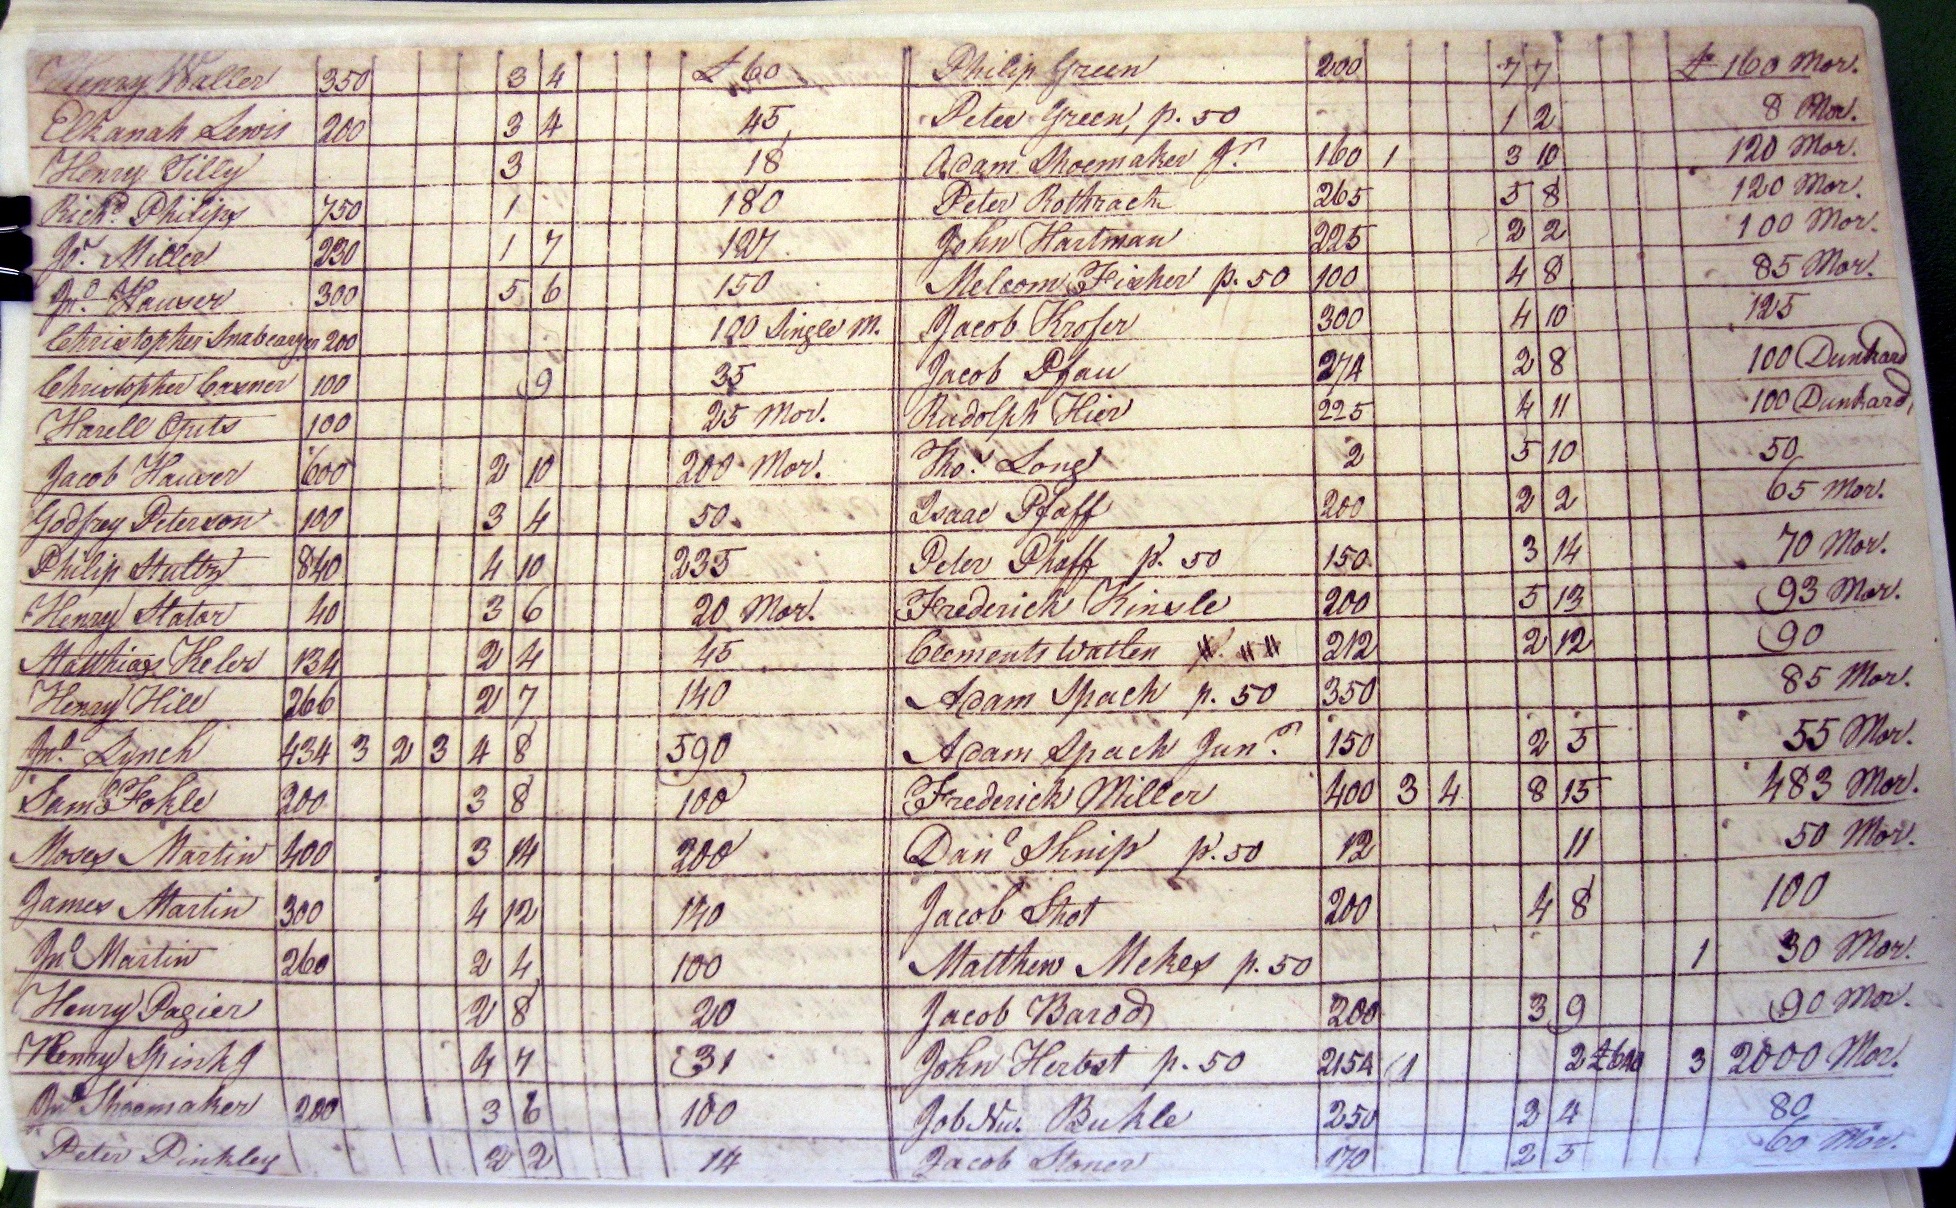 Henry Waller 350 3 4 £ 60
Elkanah Lewis 200 3 4 45
Henry Tilly 3 18
Richd. Philips 750 1 180
Jn. Miller 230 1 7 127
Jno. Hauser 300 5 6 150
Christopher 200 100 Single M.
Christopher Casner 100 9 35
Harell 100 25 Mor.
Jacob Hauser 600 2 10 200 Mor.
Godfrey Peterson 100 3 4 50
Philip Stultz 840 4 10 235
Henry Stator 40 3 6 20 Mor.
Matthias Keler 134 2 4 45
Henry Hill 266 2 7 140
Jno. Lynch 434 3 2 3 4 8 590
Saml. Fokle 200 3 8 100
Moses Martin 400 3 14 200
James Martin 300 4 12 140
Jno Martin 260 2 4 100
Henry Pagier 2 8 20
Henry 4 7 31
Jno Shoemaker 200 3 6 100
Peter Pinkley 2 2 14
Philip Green 200 7 7 £ 160 Mor.
Peter Green, p. 50 1 2 8 Mor.
Adam Shoemaker Jr. 160 1 3 10 120 Mor.
Peter Rothrack 265 5 8 120 Mor.
John Hartman 225 2 2 100 Mor.
Melcom Fisher p. 50 100 4 8 85 Mor.
Jacob Krofer 300 4 10 125
Jacob Pfau 274 2 8 100 Dunkard
Rudolph Hier 225 4 11 100 Dunkard
Tho. Long 2 5 10 50
Isaac Pfaff 200 2 2 65 Mor.
Peter Phaff p. 50 150 3 14 70 Mor.
Frederick Kinsle 200 5 13 93 Mor.
Clements Watten 212 2 12 90
Adam Spach p. 50 350 85 Mor.
Adam Spach Junr. 150 2 5 55 Mor.
Frederick Miller 400 3 4 8 15 483 Mor.
Danl Shnip p. 50 12 11 50 Mor.
Jacob Shot 200 4 8 100
Matthew Mekes p. 50 1 30 Mor.
Jacob Barod 200 3 9 90 Mor.
John Herbst p. 50 2154 1 2 3 2000 Mor.
Job Buhle 250 2 4 80
Jacob Stoner 170 2 5 60 Mor.